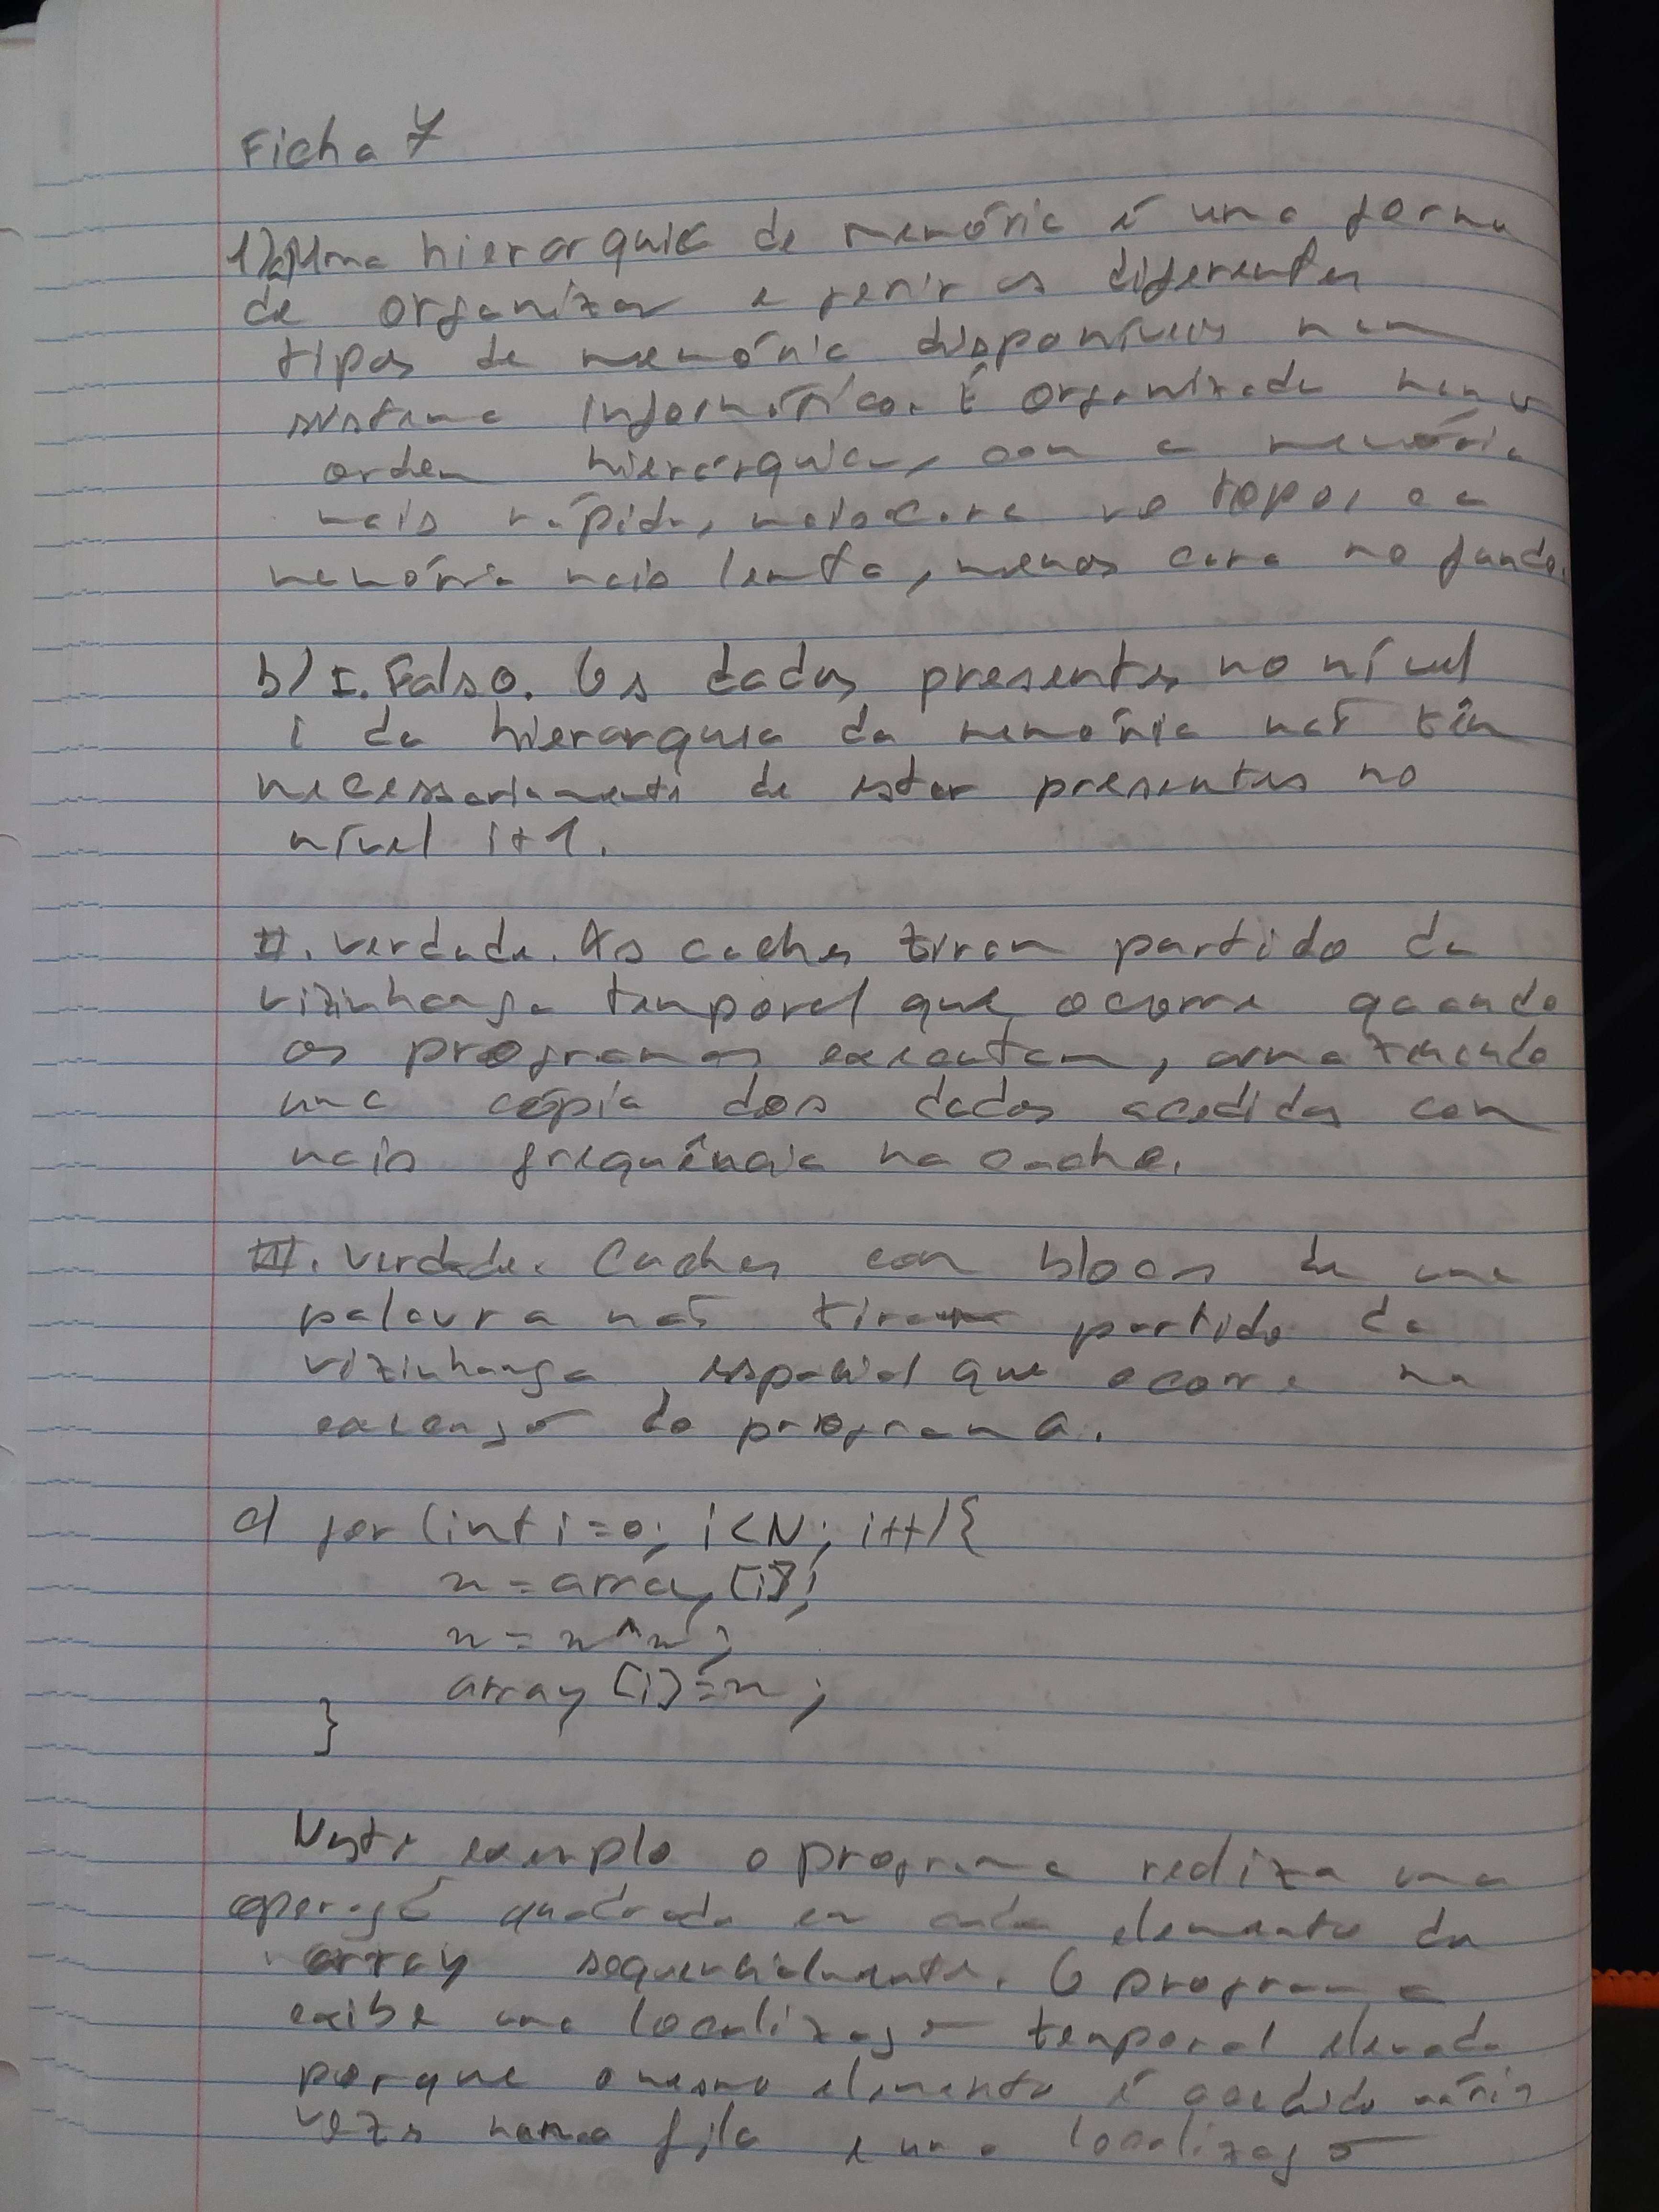 Ficha 7
1) a) Uma hierarquia de memória é uma forma
de organizar e gerir os diferentes
tipos de memória disponíveis num
sistema informático. É organizada numa
ordem hierárquica, com a memória
mais rápida, mais cara no topo, e a
memória mais lenta, menos cara no fundo.
b) I. Falso. Os dados presentes no nível
i da hierarquia da memória não têm
necessariamente de estar presentes no
nível i+1.
II. Verdade. As caches tiram partido da
vizinhança temporal que ocorre quando
os programas executam, armazenando
uma cópia dos dados acedidos com
mais frequência na cache.
III. Verdade. Caches com blocos de uma
palavra não tiram partido da
vizinhança espacial que ocorre na
execução do programa.
c) for (int i=0; i<N; i++) {
x = array [i];
x = x^x;
array [i] = x;
}
Neste exemplo o programa realiza uma
operação quadrada em cada elemento da
array sequencialmente. O programa
exibe uma localização temporal elevada
porque o mesmo elemento é acedido várias
vezes numa fila e uma localização